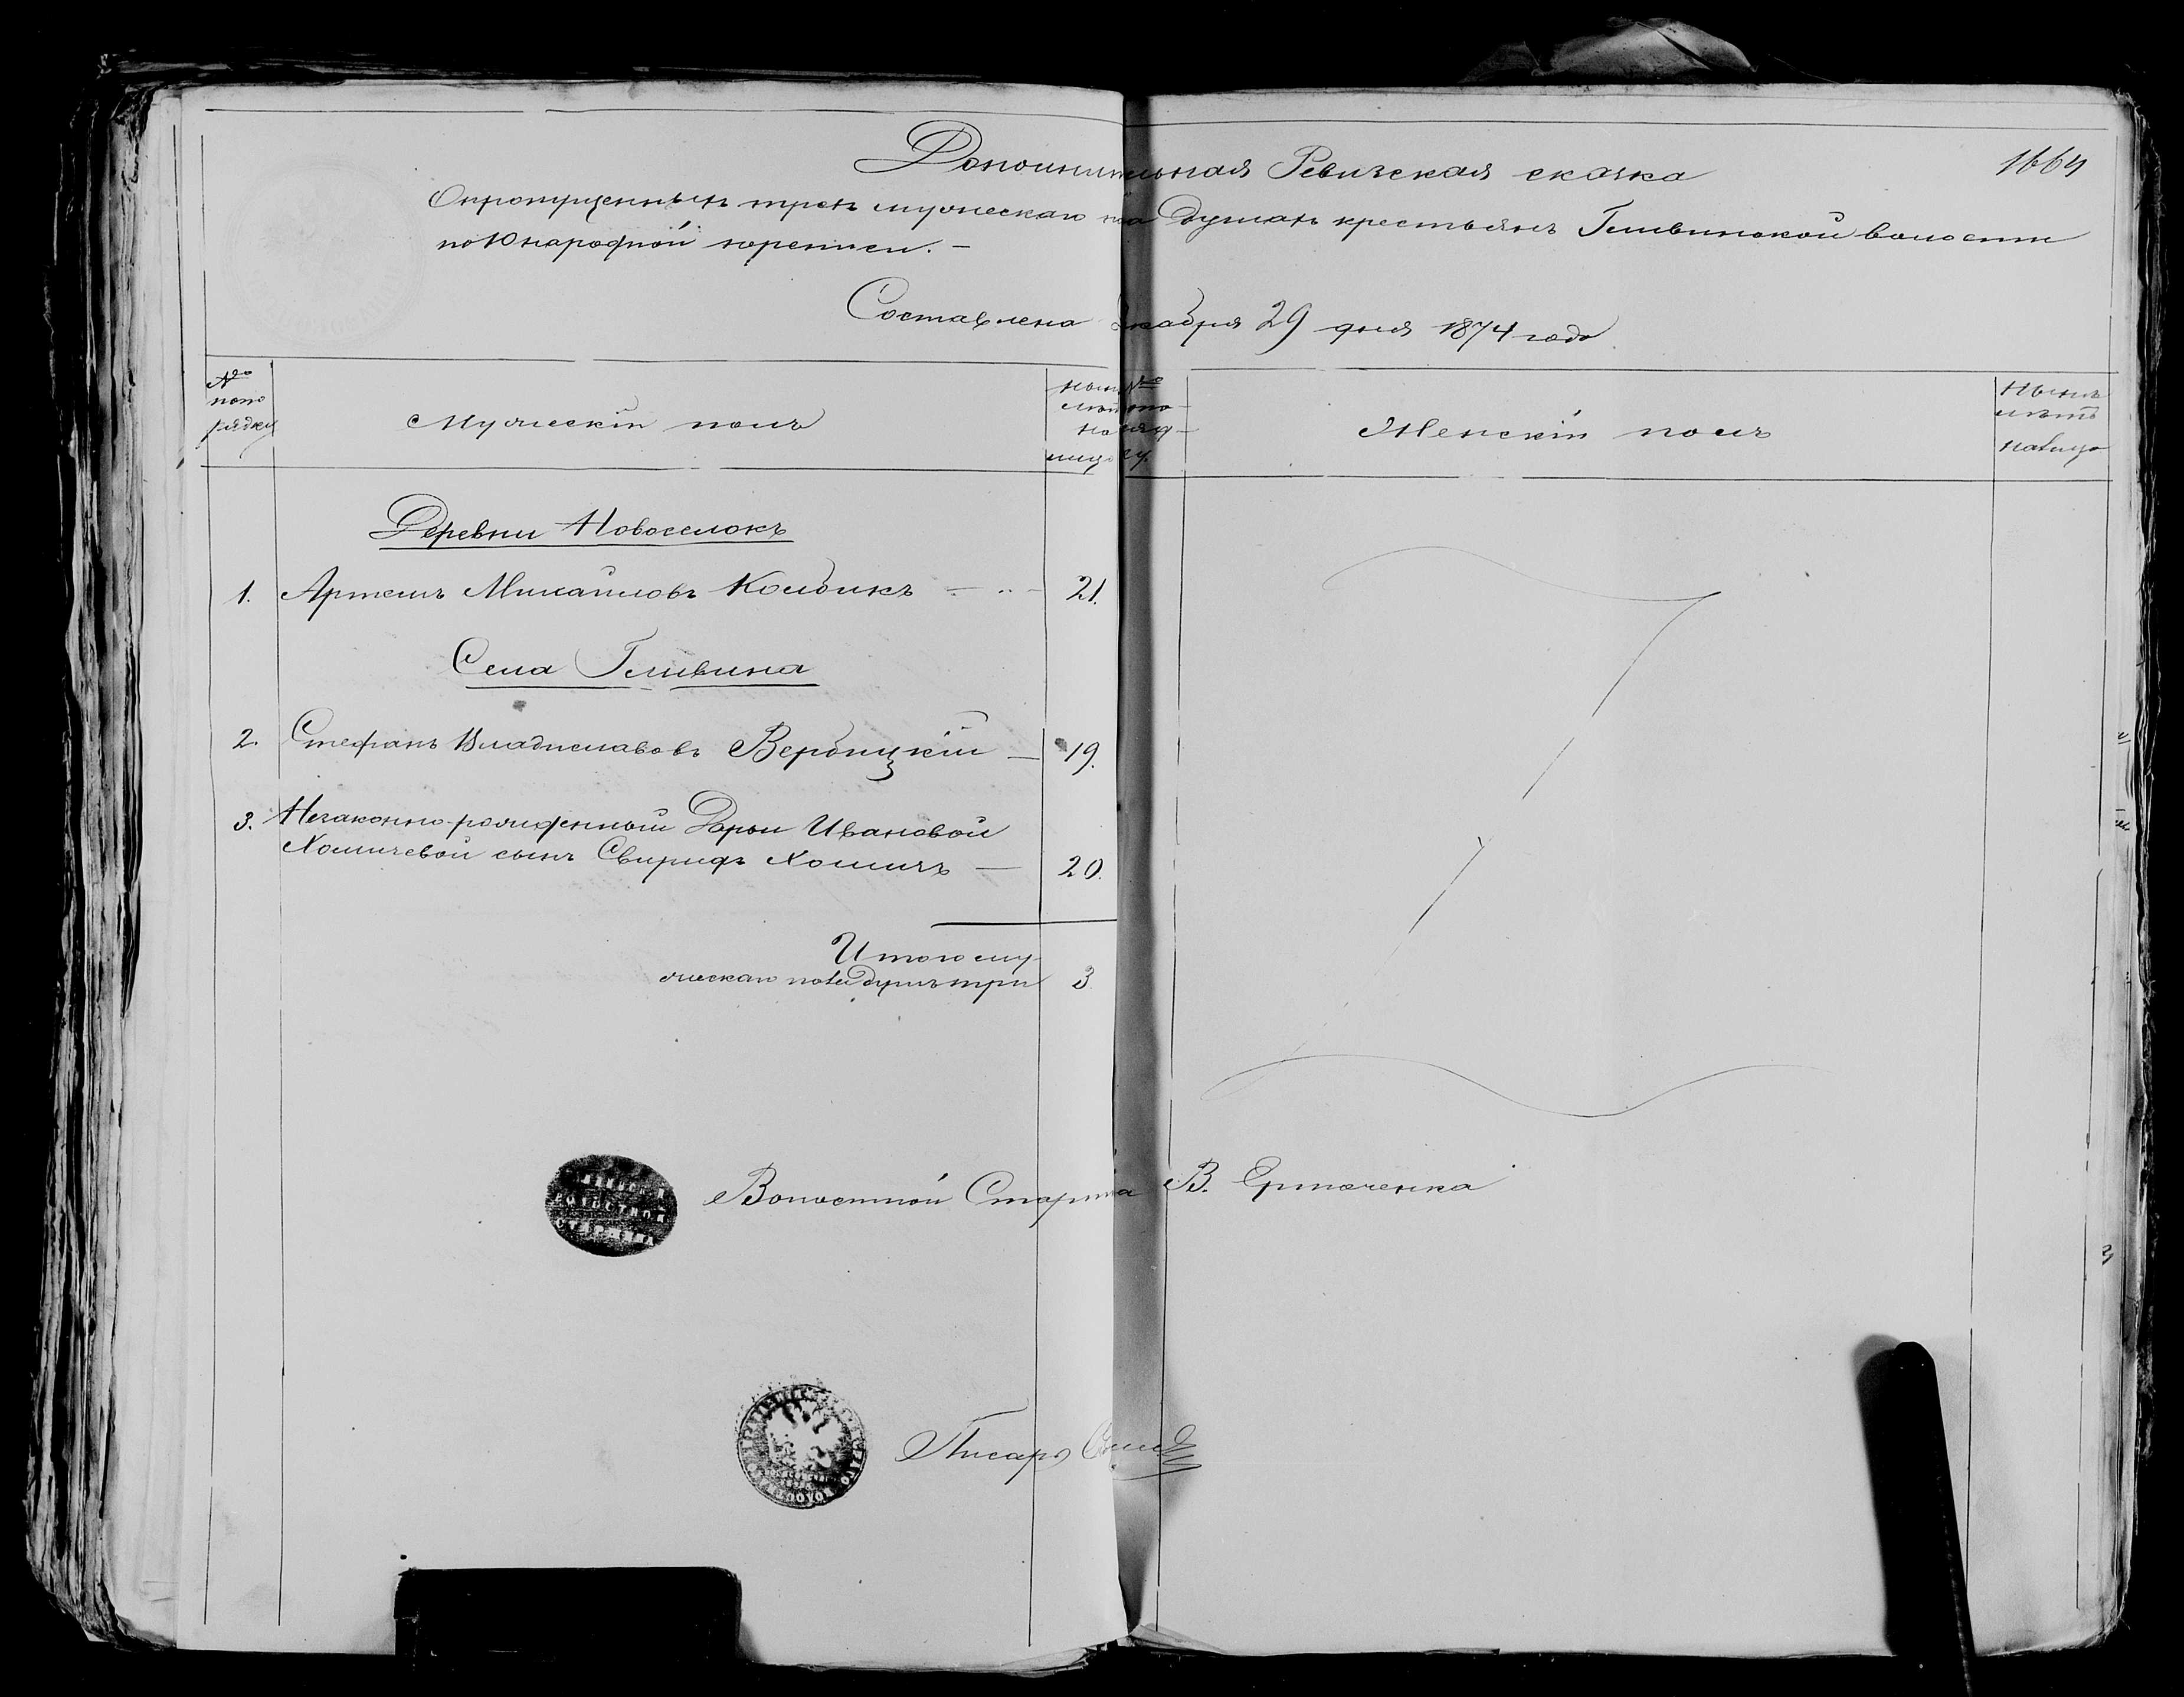 1664
Дополнительная Ревизская сказка
О пропущенныхъ трехъ мужескаго пола душахъ крестьянъ Гливинской волости
по 10 народной переписи. —
Составлена Декабря 29 дня 1874 года
№ по по рядку
Мужескій полъ
Ныне лѣтъ на лицо
№ по поряд ку.
Женскій полъ
Нынѣ лѣтъ налицо
Деревни Новоселокъ
1. Артемъ Михайловъ Колбикъ — 21.
Села Гливина
2. Стефанъ Владиславовъ Вербицкій — 19.
3. Незаконно-рожденный Дарьи Ивановой
Хомичевой сынъ Свиридъ Хомичъ — 20.
Итого му-
жескаго пола душъ три 3
ВОЛОСТНОЙ
СТАРШИНА
Волостной Старшина В. Ермаченка
Писарь